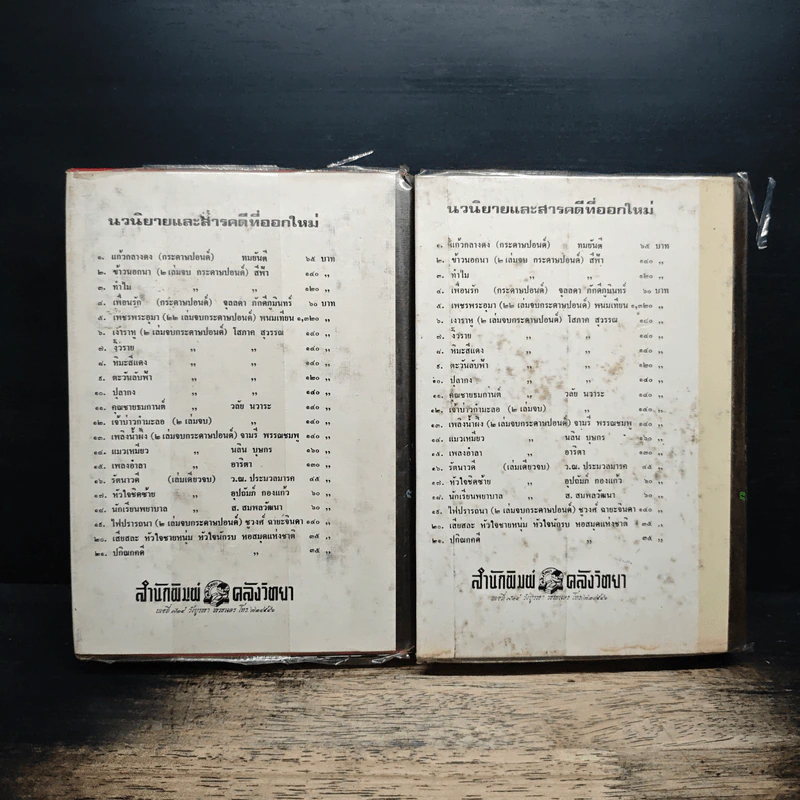 นวนิยายและสารคดีที่ออกใหม่
๑. แก้วกลางดง (กระดาษปอนด์) ทมยันตี ๖๕ บาท
๒. ข้าวนอกนา (๒ เล่มจบ กระดาษปอนด์) สีฟ้า ๑๔๐ ,,
๓. ทำไม ,, ,, ๑๒๐ ,,
๔. เพื่อนรัก (กระดาษปอนด์) จุลลดา ภักดีภูมินทร์ ๖๐ บาท
๕. เพชรพระอุมา (๒๒ เล่มจบกระดาษปอนด์) พนมเทียน ๑,๓๒๐ ,,
๖. เงาราหู (๒ เล่มจบกระดาษปอนด์) โสภาค สุวรรณ ๑๔๐ ,,
๗. งิ้วราย ,, ,, ๑๔๐ ,,
๘. หิมะสีแดง ,, ,, ๑๔๐ ,,
๙. ตะวันลับฟ้า ,, ,, ๑๒๐ ,,
๑๐. ปุลากง ,, ,, ๑๔๐ ,,
๑๑. คุณชายธมกานต์ ,, วลัย นวาระ ๑๔๐ ,,
๑๒. เจ้าบ่าวกำมะลอ (๒ เล่มจบ) ,, ๑๔๐ ,,
๑๓. เพลิงน้ำผึ้ง (๒ เล่มจบกระดาษปอนด์) จามรี พรรณชมพู ๑๔๐ ,,
๑๔. แมวเหมียว ,, นลิน บุษกร ๑๔๐ ,,
๑๕. เพลงอำลา ,, อาริตา ๑๓๐ ,,
๑๖. รัตนาวดี (เล่มเดียวจบ) ว.ณ. ประมวลมารค ๔๕ ,,
๑๗. หัวใจชิดซ้าย ,, อุปถัมภ์ กองแก้ว ๖๐ ,,
๑๘. นักเรียนพยาบาล ,, ส. สมพลวัฒนา ๖๐ ,,
๑๙. ไฟปรารถนา (๒ เล่มจบกระดาษปอนด์) ชูวงศ์ ฉายะจินดา ๑๔๐ ,,
๒๐. เสียสละ หัวใจชายหนุ่ม หัวใจนักรบ หอสมุดแห่งชาติ ๓๕ ,,
๒๑. ปกิณกคดี ,, ๓๕ ,,
สำนักพิมพ์ คลังวิทยา
นวนิยายและสารคดีที่ออกใหม่
๑. แก้วกลางดง (กระดาษปอนด์) ทมยันตี ๖๕ บาท
๒. ข้าวนอกนา (๒ เล่มจบ กระดาษปอนด์) สีฟ้า ๑๔๐ ,,
๓. ทำไม ,, ,, ๑๒๐ ,,
๔. เพื่อนรัก (กระดาษปอนด์) จุลลดา ภักดีภูมินทร์ ๖๐ บาท
๕. เพชรพระอุมา (๒๒ เล่มจบกระดาษปอนด์) พนมเทียน ๑,๓๒๐ ,,
๖. เงาราหู (๒ เล่มจบกระดาษปอนด์) โสภาค สุวรรณ ๑๔๐ ,,
๗. งิ้วราย ,, ,, ๑๔๐ ,,
๘. หิมะสีแดง ,, ,, ๑๔๐ ,,
๙. ตะวันลับฟ้า ,, ,, ๑๒๐ ,,
๑๐. ปุลากง ,, ,, ๑๔๐ ,,
๑๑. คุณชายธมกานต์ ,, วลัย นวาระ ๑๔๐ ,,
๑๒. เจ้าบ่าวกำมะลอ (๒ เล่มจบ) ,, ๑๔๐ ,,
๑๓. เพลิงน้ำผึ้ง (๒ เล่มจบกระดาษปอนด์) จามรี พรรณชมพู ๑๔๐ ,,
๑๔. แมวเหมียว ,, นลิน บุษกร ๑๔๐ ,,
๑๕. เพลงอำลา ,, อาริตา ๑๓๐ ,,
๑๖. รัตนาวดี (เล่มเดียวจบ) ว.ณ. ประมวลมารค ๔๕ ,,
๑๗. หัวใจชิดซ้าย ,, อุปถัมภ์ กองแก้ว ๖๐ ,,
๑๘. นักเรียนพยาบาล ,, ส. สมพลวัฒนา ๖๐ ,,
๑๙. ไฟปรารถนา (๒ เล่มจบกระดาษปอนด์) ชูวงศ์ ฉายะจินดา ๑๔๐ ,,
๒๐. เสียสละ หัวใจชายหนุ่ม หัวใจนักรบ หอสมุดแห่งชาติ ๓๕ ,,
๒๑. ปกิณกคดี ,, ๓๕ ,,
สำนักพิมพ์ คลังวิทยา